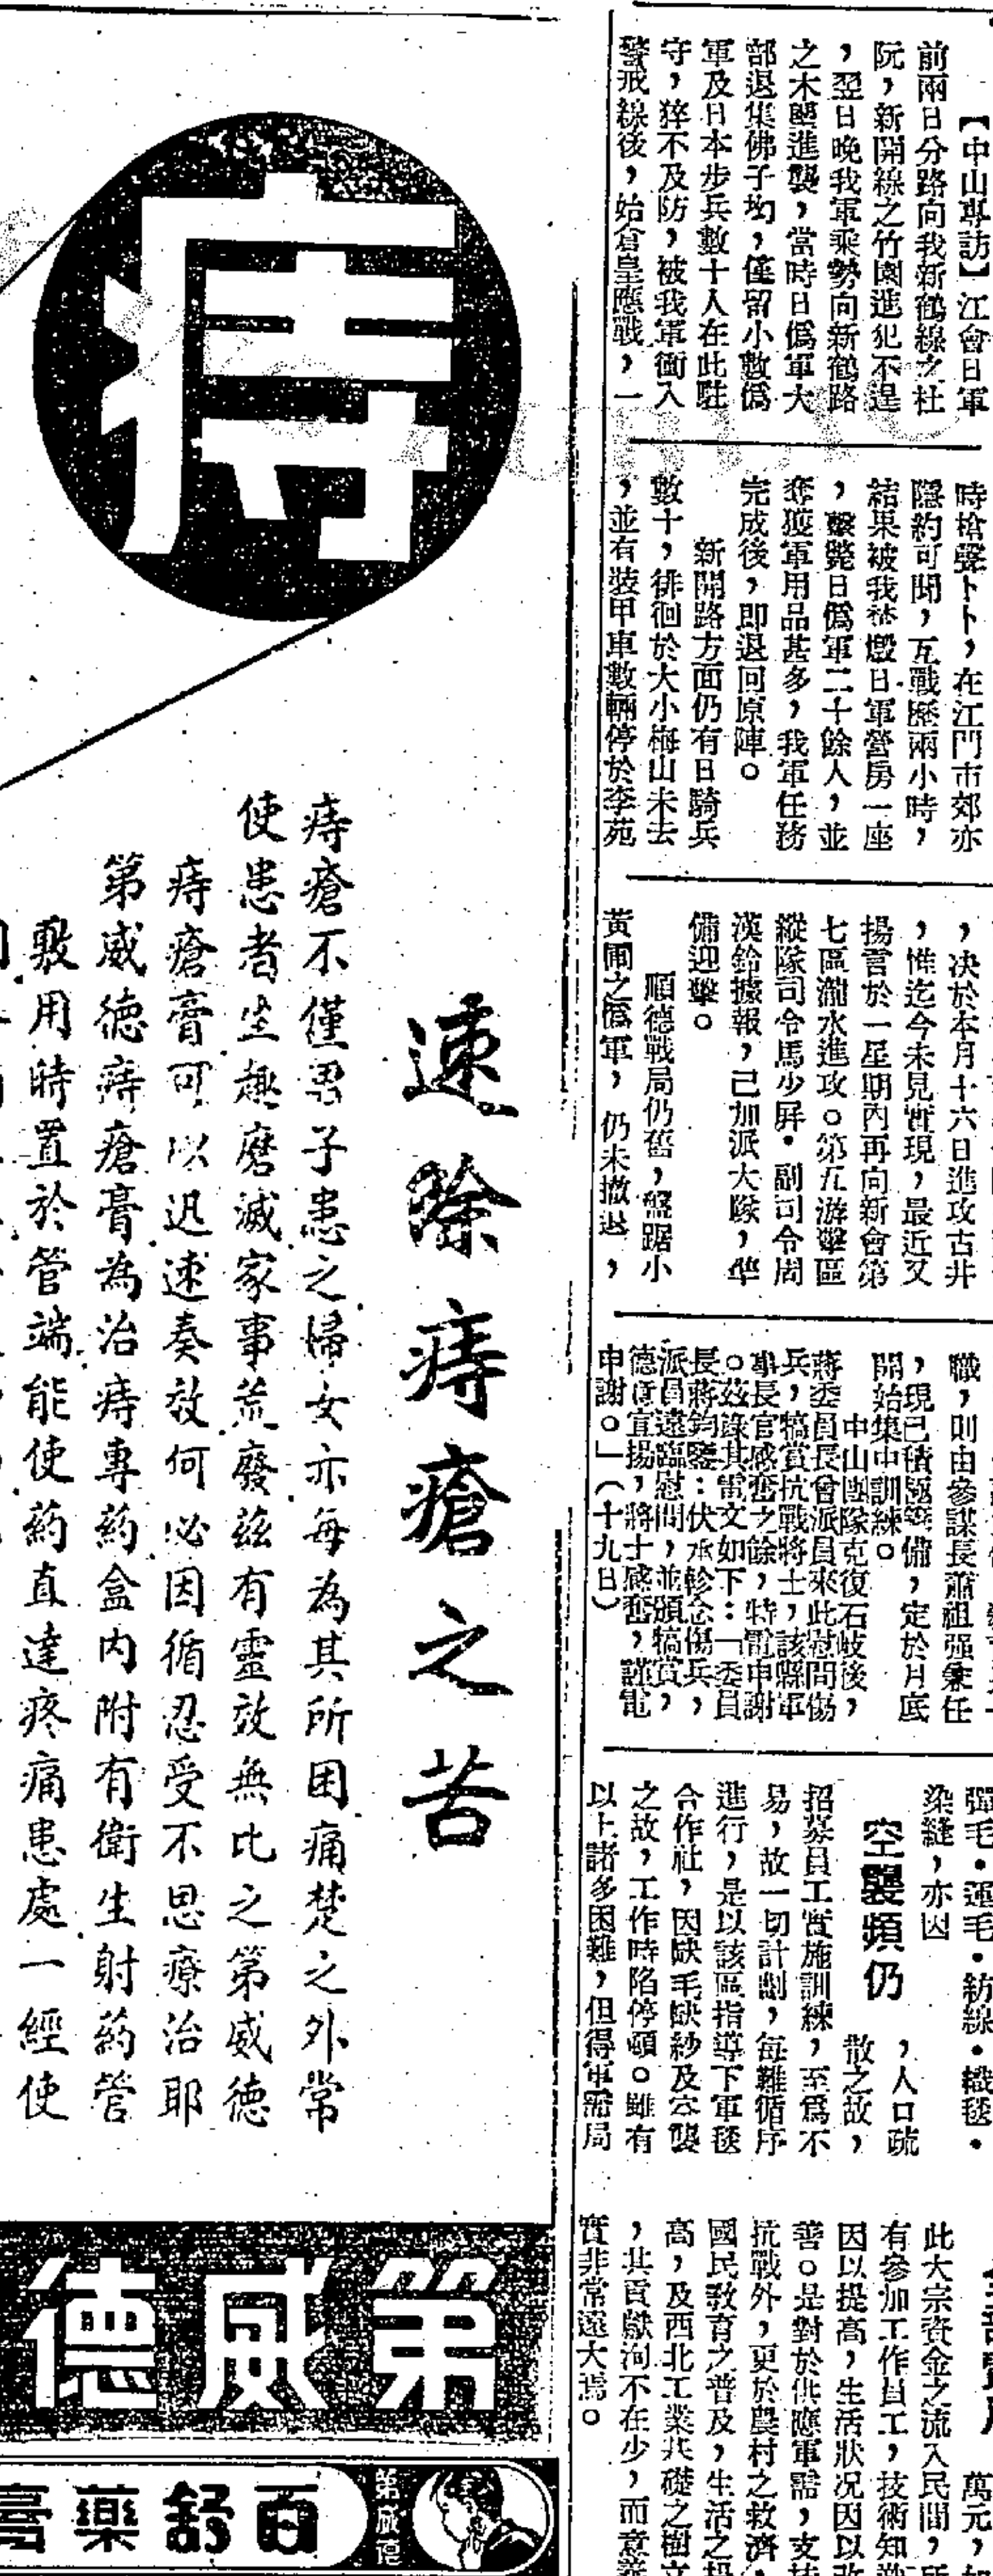 【中山專訪】江會日軍
前兩日分路向我新鶴線之杜
阮，新開線之竹園進犯不逞
，翌日晚我軍乘勢向新鶴路
之木壆進襲，當時日僞軍大
部退集佛子坳，僅留小數僞
軍及日本步兵數十人在此駐
守，猝不及防，被我軍衝入
警戒線後，始倉皇應戰，一
時槍聲卜卜，在江門市郊亦
隱約可聞，互戰歷兩小時，
結果被我焚燬日軍營房一座
，擊斃日僞軍二十餘人，並
奪獲軍用品甚多，我軍任務
完成後，即退回原陣。
新開路方面仍有日騎兵
數十，徘徊於大小梅山未去
，並有裝甲車數輛停於李苑
，决於本月十六日進攻古井
，惟迄今未見實現，最近又
揚言於一星期內再向新會第
七區瀧水進攻。第五游擊區
縱隊司令馬少屏．副司令周
漢鈴據報，已加派大隊，準
備迎擊。
順德戰局仍舊，盤踞小
黃圃之僞軍，仍未撤退，
職，則由參謀長蕭祖强兼任
，現已積極籌備，定於月底
開始集中訓練。
中山團隊克復石岐後，
蔣委員長曾派員來此慰問傷
兵，犒賞抗戰將士，該縣軍
事長官感奮之餘，特電申謝
。茲錄其電文如下：「委員
長蔣鈞鑒：伏承軫念傷兵，
派員遠臨慰問，並頒犒賞，
德意宣揚，將士感奮，謹電
申謝。」（十九日）
彈毛．運毛．紡線．織毯．
染縫，亦因
空襲頻仍
，人口疏
散之故，
招募員工實施訓練，至爲不
易，故一切計劃，每難循序
進行，是以該區指導下軍毯
合作社，因缺毛缺紗及空襲
之故，工作時陷停頓。雖有
以上諸多困難，但得軍需局
萬元，
此大宗資金之流入民間，所
有參加工作員工，技術知識
因以提高，生活狀况因以改
善。是對於供應軍需，支持
抗戰外，更於農村之救濟，
國民教育之普及，生活之提
高，及西北工業共礎之樹立
，其貢獻洵不在少，而意義
實非常遠大焉。
痔
速除痔瘡之苦
痔瘡不僅男子患之婦女亦每為其所困痛楚之外常
使患者生趣磨滅家事荒廢茲有靈效無比之第威德
痔瘡膏可以迅速奏效何必因循忍受不思療治耶
第威德痔瘡膏為治痔專葯盒內附有衛生射葯管
敷用時置於管端能使葯直達疼痛患處一經使
第威德
第威德
百舒藥膏